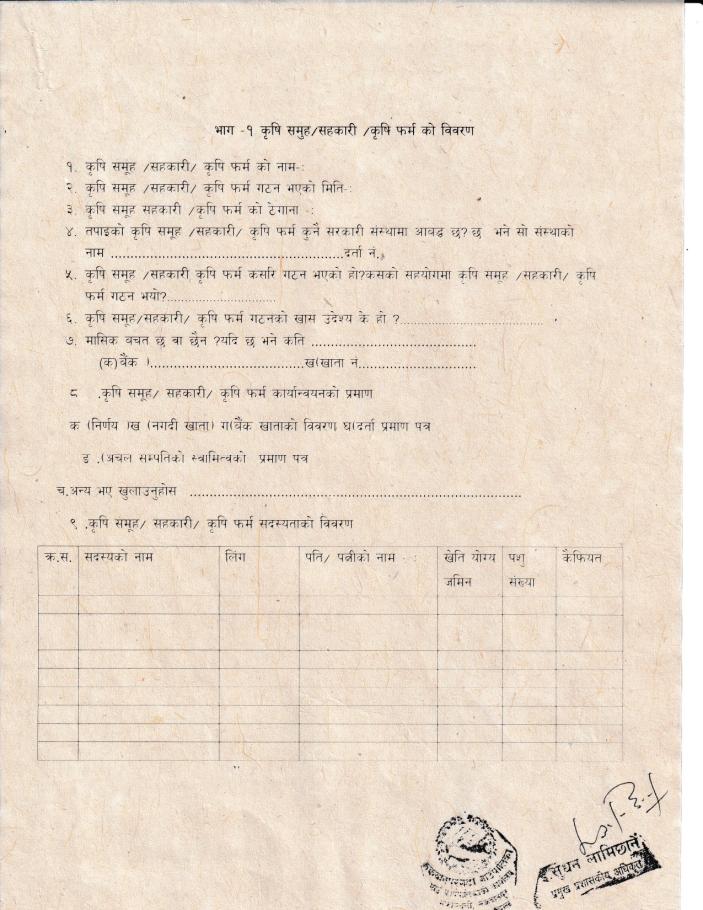 भाग -१ कृषि समुह/सहकारी /कृषि फर्म को विवरण
१. कृषि समूह /सहकारी/ कृषि फर्म को नाम-:
२. कृषि समूह /सहकारी/ कृषि फर्म गटन भएको मिति-:
३. कृषि समूह सहकारी /कृषि फर्म को टेगाना -:
४. तपाइको कृषि समूह /सहकारी/ कृषि फर्म कुनै सरकारी संस्थामा आवद्ध छ? छ भने सो संस्थाको
नाम ........................................................दर्ता नं..
५. कृषि समूह /सहकारी कृषि फर्म कसरि गटन भएको हो?कसको सहयोगमा कृषि समूह /सहकारी/ कृषि
फर्म गटन भयो?..........................
६. कृषि समूह/सहकारी/ कृषि फर्म गटनको खास उदेश्य के हो ?...................................
७. मासिक बचत छ वा छैन ?यदि छ भने कति .......................................
(क)बैंक )......................................ख(खाता नं.............................
८ .कृषि समूह/ सहकारी/ कृषि फर्म कार्यान्वयनको प्रमाण
क (निर्णय )ख (नगदी खाता) ग(बैंक खाताको विवरण घ(दर्ता प्रमाण पत्र
ङ .(अचल सम्पतिको स्वामित्वको प्रमाण पत्र
च.अन्य भए खुलाउनुहोस ..................................................................................
९ .कृषि समूह/ सहकारी/ कृषि फर्म सदस्यताको विवरण
क्र.स. सदस्यको नाम लिंग पति/ पत्नीको नाम खेति योग्य पशु कैफियत
जमिन संख्या
सुधन लामिछाने
प्रमुख प्रशासकीय अधिकृत